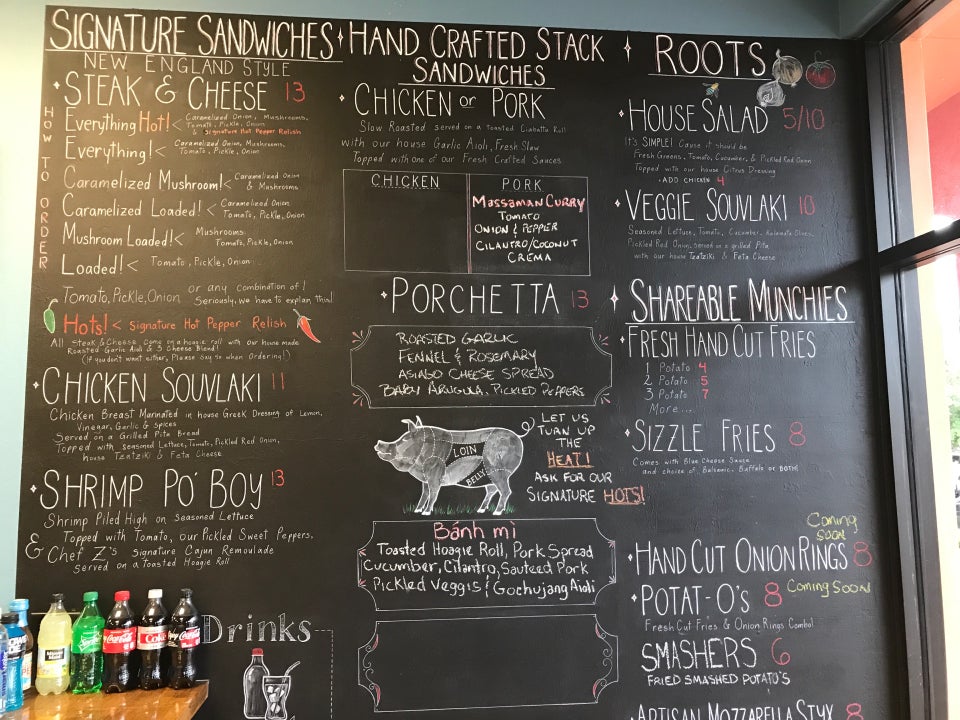 SIGNATURE SANDWICHES
NEW ENGLAND STYLE
STEAK & CHEESE 13
HOW TO ORDER
Everything Hot! < Caramelized Onion, Mushrooms,
Tomato, Pickle, Onion
& Signature Hot Pepper Relish
Everything! < Caramelized Onion, Mushrooms,
Tomato, Pickle, Onion
Caramelized Mushroom! < Caramelized Onion
& Mushrooms
Caramelized Loaded! < Caramelized Onion
Tomato, Pickle, Onion
Mushroom Loaded! < Mushrooms
Tomato, Pickle, Onion
Loaded! < Tomato, Pickle, Onion
Tomato, Pickle, Onion or any combination of!
Seriously, we have to explain this!
Hots! < Signature Hot Pepper Relish
All Steak & Cheese come on a hoagie roll with our house made
Roasted Garlic Aioli & 3 Cheese Blend!
(If you don't want either, Please Say so when Ordering!)
CHICKEN SOUVLAKI 11
Chicken Breast Marinated in house Greek Dressing of Lemon,
Vinegar, Garlic & Spices
Served on a Grilled Pita Bread
Topped with Seasoned Lettuce, Tomato, Pickled Red Onion,
house Tzatziki & Feta Cheese
SHRIMP PO'BOY 13
Shrimp Piled High on Seasoned Lettuce
Topped with Tomato, our Pickled Sweet Peppers,
& Chef Z's Signature Cajun Remoulade
Served on a Toasted Hoagie Roll
Drinks
HAND CRAFTED STACK
SANDWICHES
CHICKEN or PORK
Slow Roasted served on a Toasted Ciabatta Roll
with our house Garlic Aioli, Fresh Slaw
Topped with one of our Fresh Crafted Sauces
CHICKEN
PORK
MASSAMAN CURRY
TOMATO
ONION & PEPPER
CILANTRO/COCONUT
CREMA
PORCHETTA 13
ROASTED GARLIC
FENNEL & ROSEMARY
ASIAGO CHEESE SPREAD
BABY ARUGULA, PICKLED PEPPERS
LOIN
BELLY
LET US
TURN UP
THE
HEAT!
ASK FOR OUR
SIGNATURE HOTS!
Bánh mì
Toasted Hoagie Roll, Pork Spread
Cucumber, Cilantro, Sauteed Pork
Pickled Veggis & Gochujang Aioli
ROOTS
HOUSE SALAD 5/10
It's SIMPLE! Cause it should be
Fresh Greens, Tomato, Cucumber, & Pickled Red Onion
Topped with our house Citrus Dressing
- ADD CHICKEN 4
VEGGIE SOUVLAKI 10
Seasoned Lettuce, Tomato, Cucumber, Kalamata Olives,
Pickled Red Onion, served on a grilled Pita
with our house Tzatziki & Feta Cheese
SHAREABLE MUNCHIES
FRESH HAND CUT FRIES
1 Potato 4
2 Potato 5
3 Potato 7
More...
SIZZLE FRIES 8
Comes with Blue Cheese Sauce
and choice of, Balsamic, Buffalo or BOTH!
Coming
Soon
HAND CUT ONION RINGS 8
POTAT-O's 8 Coming Soon
Fresh Cut Fries & Onion Rings Combo!
SMASHERS 6
FRIED SMASHED POTATO'S
ARTISAN MOZZARELLA STYX 8